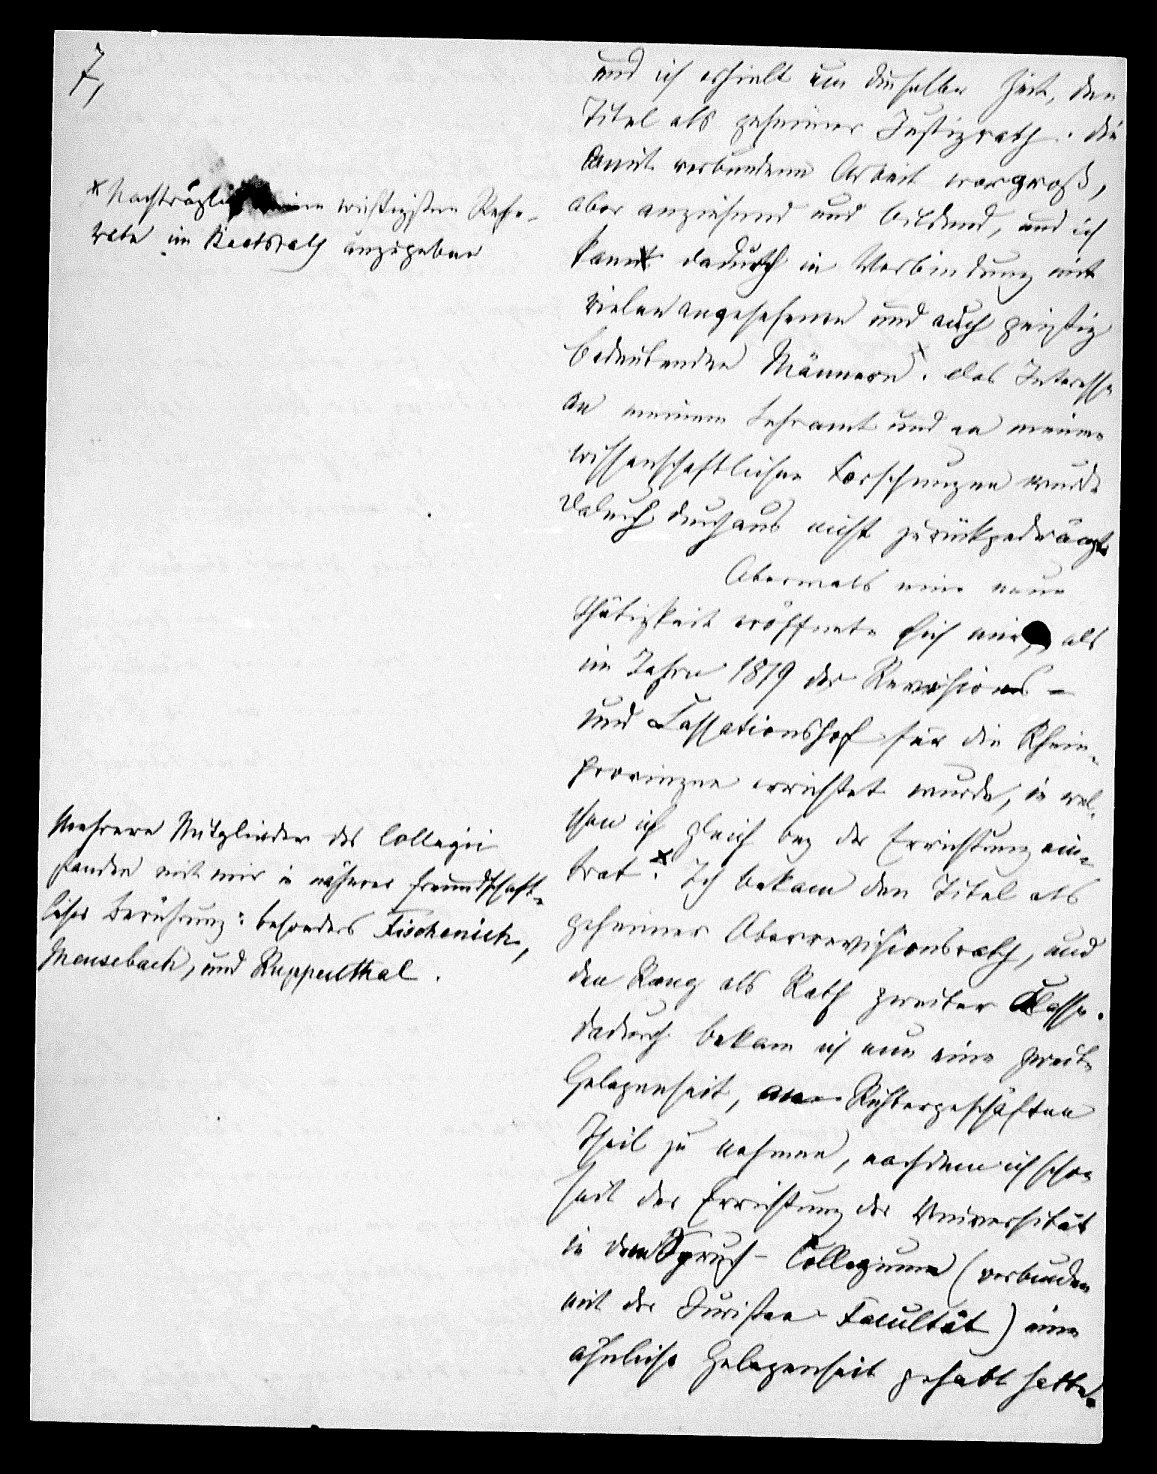 7,
und ich erhielt um dieselbe Zeit, den
Titel als geheimer Justizrath. Die
damit verbundene Arbeit war groß,
aber anziehend und bildend, und ich
kam dadurch in Verbindung mit
vielen angesehenen und auch geistig
bedeutenden Männern x. Das Interesse
an meinem Lehramt und an meinen
wissenschaftlichen Forschungen wurde
dadurch durchaus nicht zurückgedrängt.
Abermals eine neue
Thätigkeit eröffnete sich mir, als
im Jahre 1819 der Revisions-
und Cassationshof für die Rhein-
provinzen errichtet wurde, in wel-
chen ich gleich bey der Errichtung ein-
trat x. Ich bekam den Titel als
geheimer Oberrevisionsrath, und
den Rang als Rath zweiter Classe.
Dadurch bekam ich nun eine zweite
Gelegenheit, an Richtergeschäften
Theil zu nehmen, nachdem ich schon
seit der Errichtung der Universität
in dem Spruch-Collegium (verbunden
mit der Juristen-Facultät) eine
ähnliche Gelegenheit gehabt hatte.
x Nachträglich meine wichtigsten Refe-
rate im Staatsrath anzugeben
Mehrere Mitglieder des Collegii
standen mit mir in näherer freundschaft-
licher Berührung: besonders Fischenich,
Meusebach, und Ruppenthal.